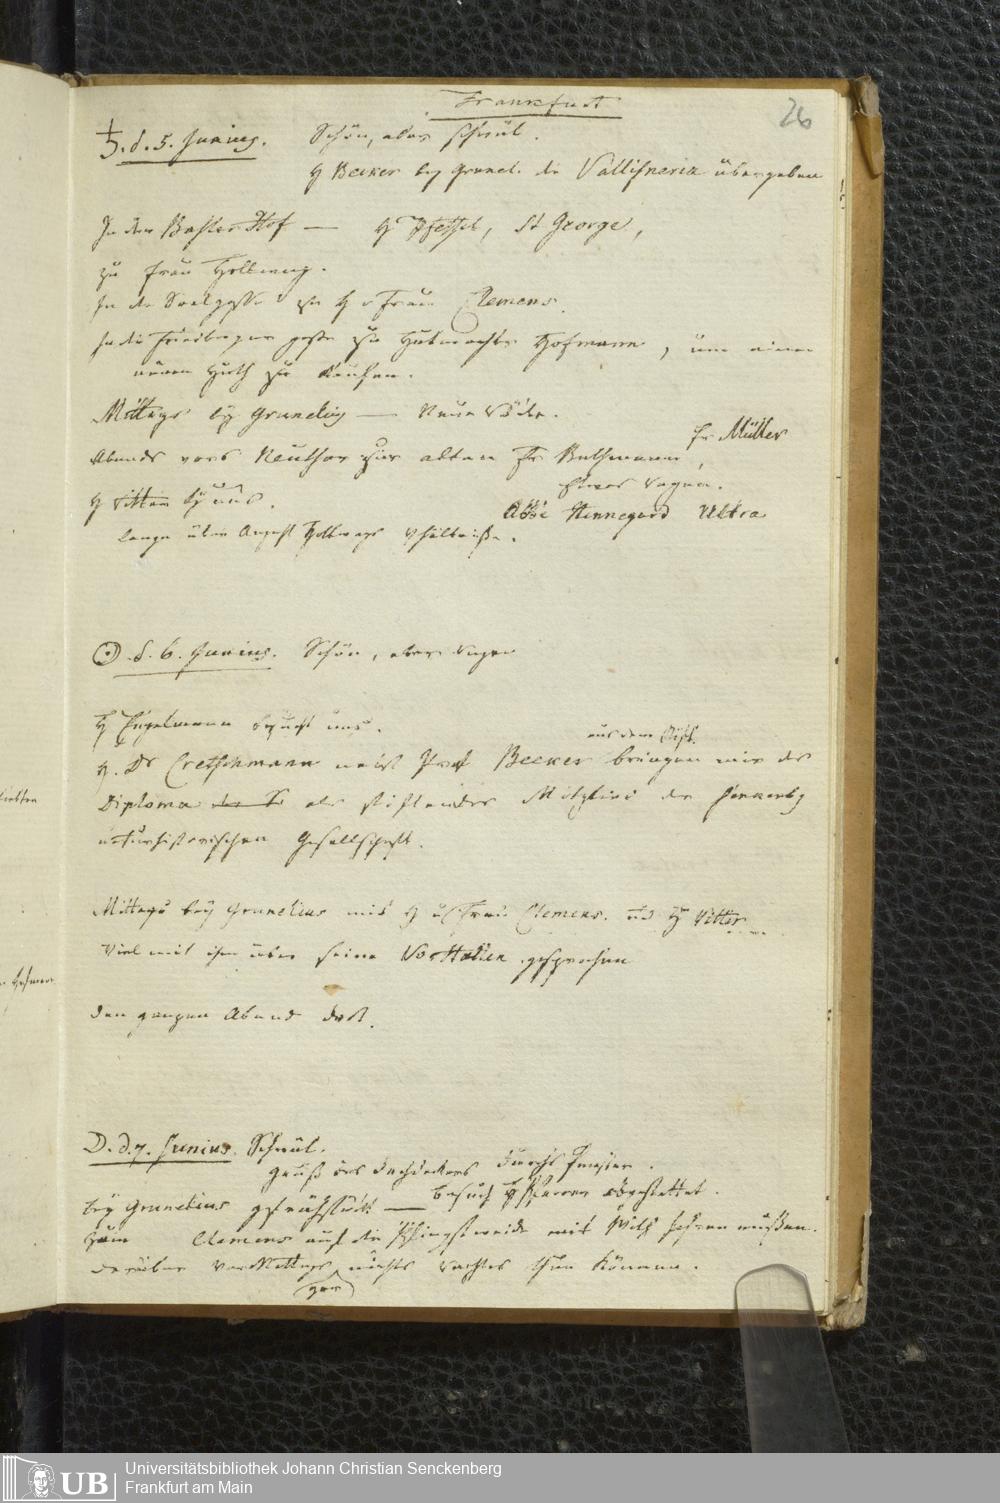 Frankfurt
26
♄. d. 5. Junius. Schön, aber schwül.
H Becker bey Grunel. die Vallisneria übergeben
In den Basler Hof — H Pfeffel, St George,
zu Frau Hollweg.
In die Saalgasse zu H u Frau Clemens.
In die Friedberger gasse zu Hutmacher Hofmann, um einen
neuen Huth zu kaufen.
Mittags bey Grunelius — Neue Bäder.
Abends vors Neuthor zur alten Fr Bethmann,
Fr Müller
etwas Regen.
H Vitter bey uns.
Abbé Hennegard Ultra
lange über August Hollwegs Vhältniße.
☉. d. 6. Junius. Schön, aber Regen
H Engelmann besucht uns.
aus dem Stift.
H. Dr Cretzschmann nebst Prof Becker bringen mir das
Diploma als stiftendes Mitglied der Senkenbg
naturhistorischen Gesellschaft.
Mittags bey Grunelius mit H u Frau Clemens. und H Vitter
Viel mit ihm über seine gesprochen
den ganzen Abend dort.
D. d. 7. Junius. Schwül.
Gruß des Dachdeckers durchs Fenster.
bey Grunelius gefrühstückt — Besuch H Pfarrer abgestattet.
Clemens auf die Pfingstweide mit Wilh fahren müßen.
darüber Vor Mittags nichts rechtes thun können.
gar
Universitätsbibliothek Johann Christian Senckenberg
Frankfurt am Main
UB